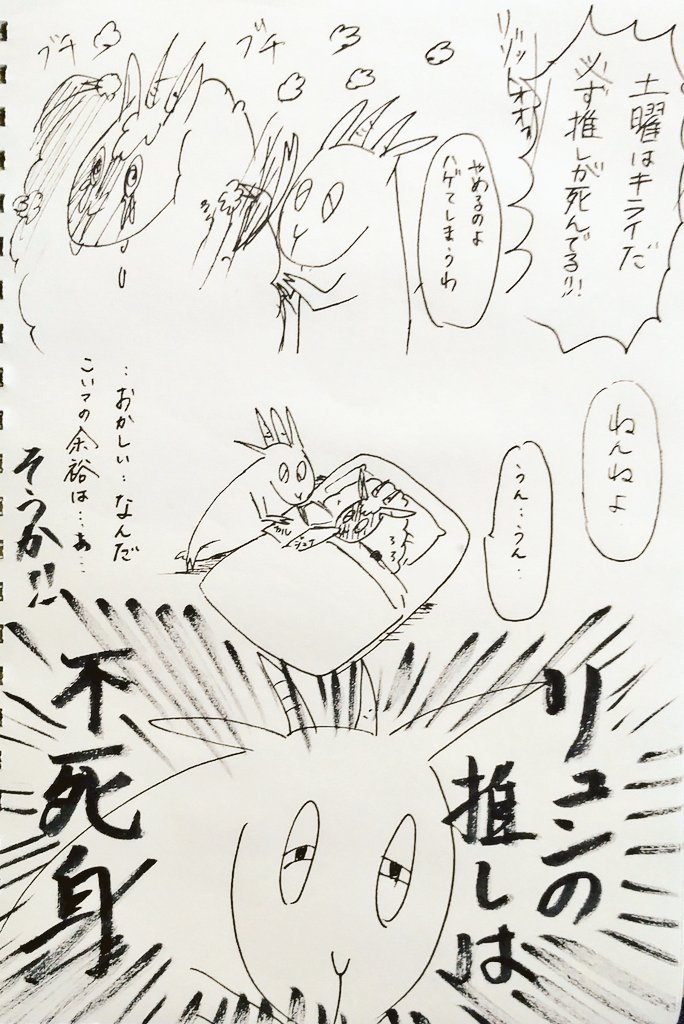 土曜はキライだ
必ず推しが死んでる!!!
リゾットォォォ
やめるのよ
ハゲてしまうわ
ブチ
ブチ
ねんねよ
うん…うん…
…おかしい…なんだ
こいつの余裕は…あ…
そうか!!
リュンの
推しは
不死身